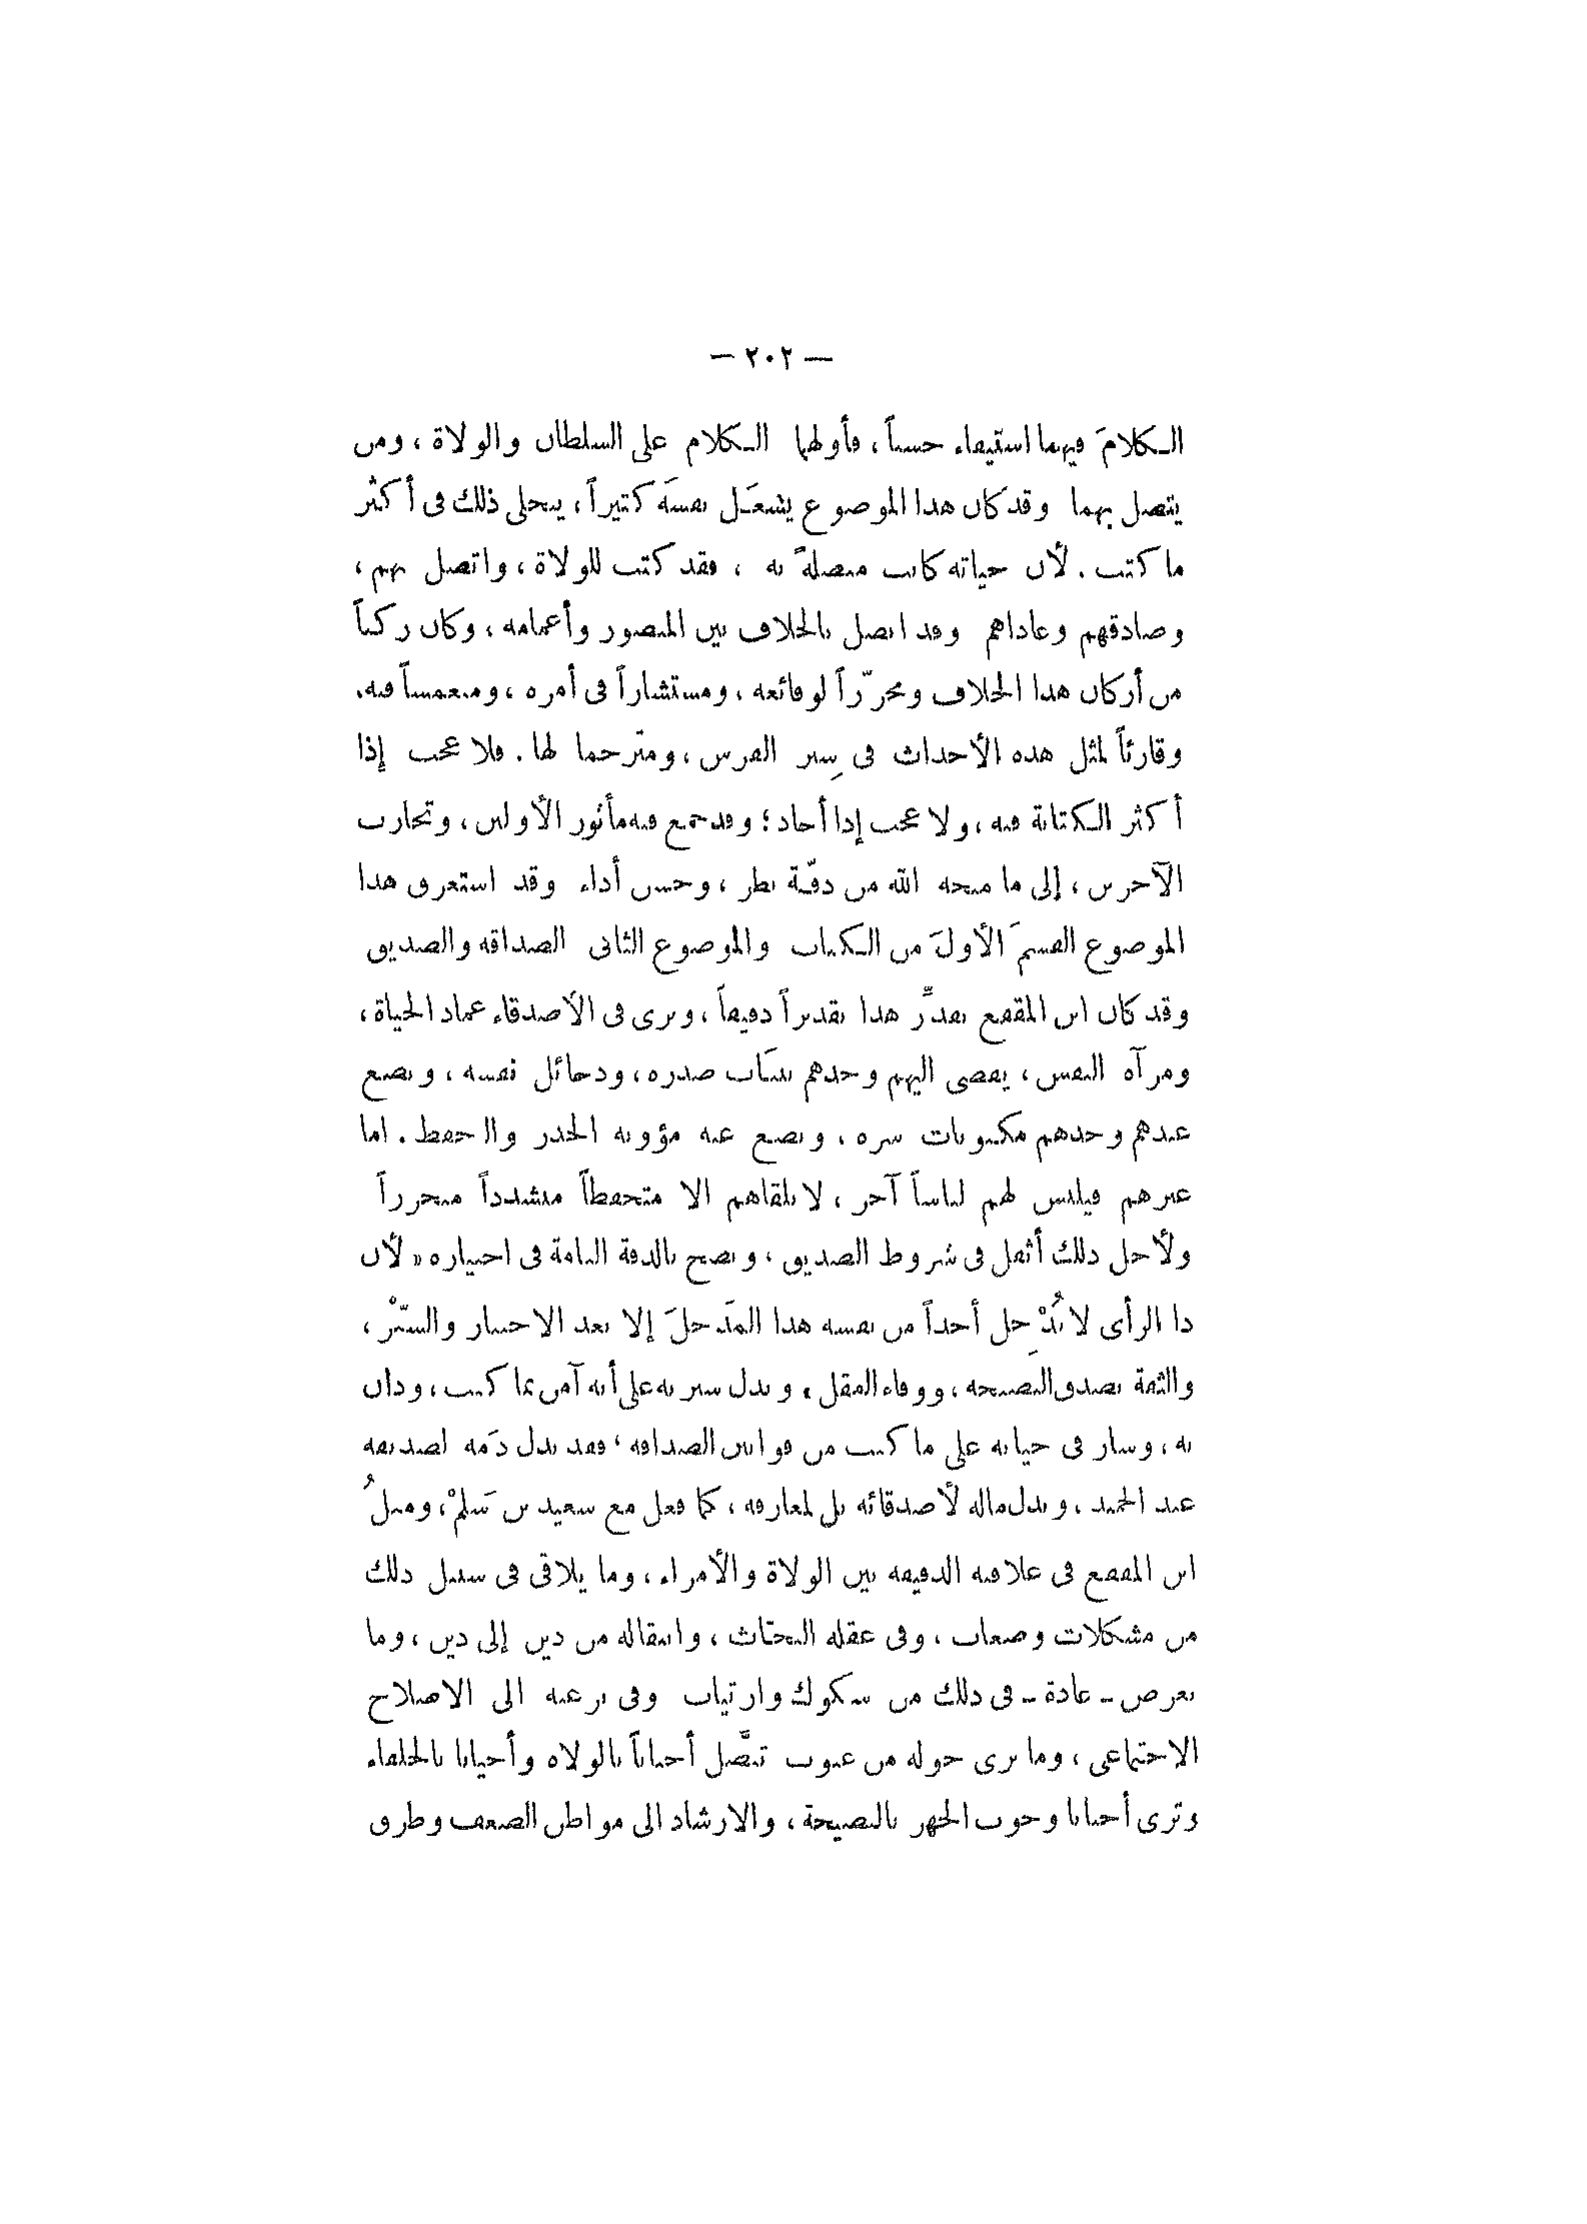 — ٢٠٢ —
الكلامَ فيهما استيفاء حسناً ، فأولهما الكلام على السلطان والولاة ، ومن
يتصل بهما وقد كان هذا الموضوع يشغَل نفسَه كثيراً ، يتجلى ذلك فى أكثر
ما كتب . لأن حياته كانت متصلةً به ، فقد كتب للولاة ، واتصل بهم ،
وصادقهم وعاداهم وقد اتصل بالخلاف بين المنصور وأعمامه ، وكان ركناً
من أركان هذا الخلاف ومحرّراً لوقائعه ، ومستشاراً فى أمره ، ومنغمساً فيه .
وقارئاً لمثل هذه الأحداث فى سِير الفرس ، ومترجما لها . فلا عجب إذا
أكثر الكتابة فيه ، ولا عجب إذا أجاد ؛ وقد جمع فيه مأثور الأولين ، وتجارب
الآخرين ، إلى ما منحه الله من دقّة نظر ، وحسن أداء وقد استغرق هذا
الموضوع القسمَ الأولَ من الكتاب والموضوع الثانى الصداقة والصديق
وقد كان ابن المقفع يقدِّر هذا تقديراً دقيقاً ، ويرى فى الأصدقاء عماد الحياة ،
ومرآة النفس ، يفضى اليهم وحدهم ببنَات صدره ، ودخائل نفسه ، ويضع
عندهم وحدهم مكنونات سره ، ويضع عنه مؤونة الحذر والتحفظ . اما
غيرهم فيلبس لهم لباساً آخر ، لا يلقاهم الا متحفظاً متشدداً متحرراً
ولأجل ذلك أثقل فى شروط الصديق ، ونصح بالدقة التامة فى اختياره « لأن
ذا الرأى لا يُدْخِل أحداً من نفسه هذا المَدخلَ إلا بعد الاختبار والسَّبْر ،
والثقة بصدق النصيحة ، ووفاء العقل » وتدل سيرته على أنه آمن بما كتب ، ودان
به ، وسار فى حياته على ما كتب من قوانين الصداقة ، فقد بذل دَمه لصديقه
عبد الحميد ، وبذل ماله لأصدقائه بل لمعارفه ، كما فعل مع سعيد بن سَلْم ، ومثلُ
ابن المقفع فى علاقته الدقيقة بين الولاة والأمراء ، وما يلاقى فى سبيل ذلك
من مشكلات وصعاب ، وفى عقله البحّاث ، وانتقاله من دين إلى دين ، وما
يعرض ـ عادة ـ فى ذلك من شكوك وارتياب وفى نزعته الى الاصلاح
الاجتماعى ، وما يرى حوله من عيوب تتَّصل أحياناً بالولاة وأحيانا بالخلفاء
وترى أحيانا وجوب الجهر بالنصيحة ، والارشاد الى مواطن الضعف وطرق